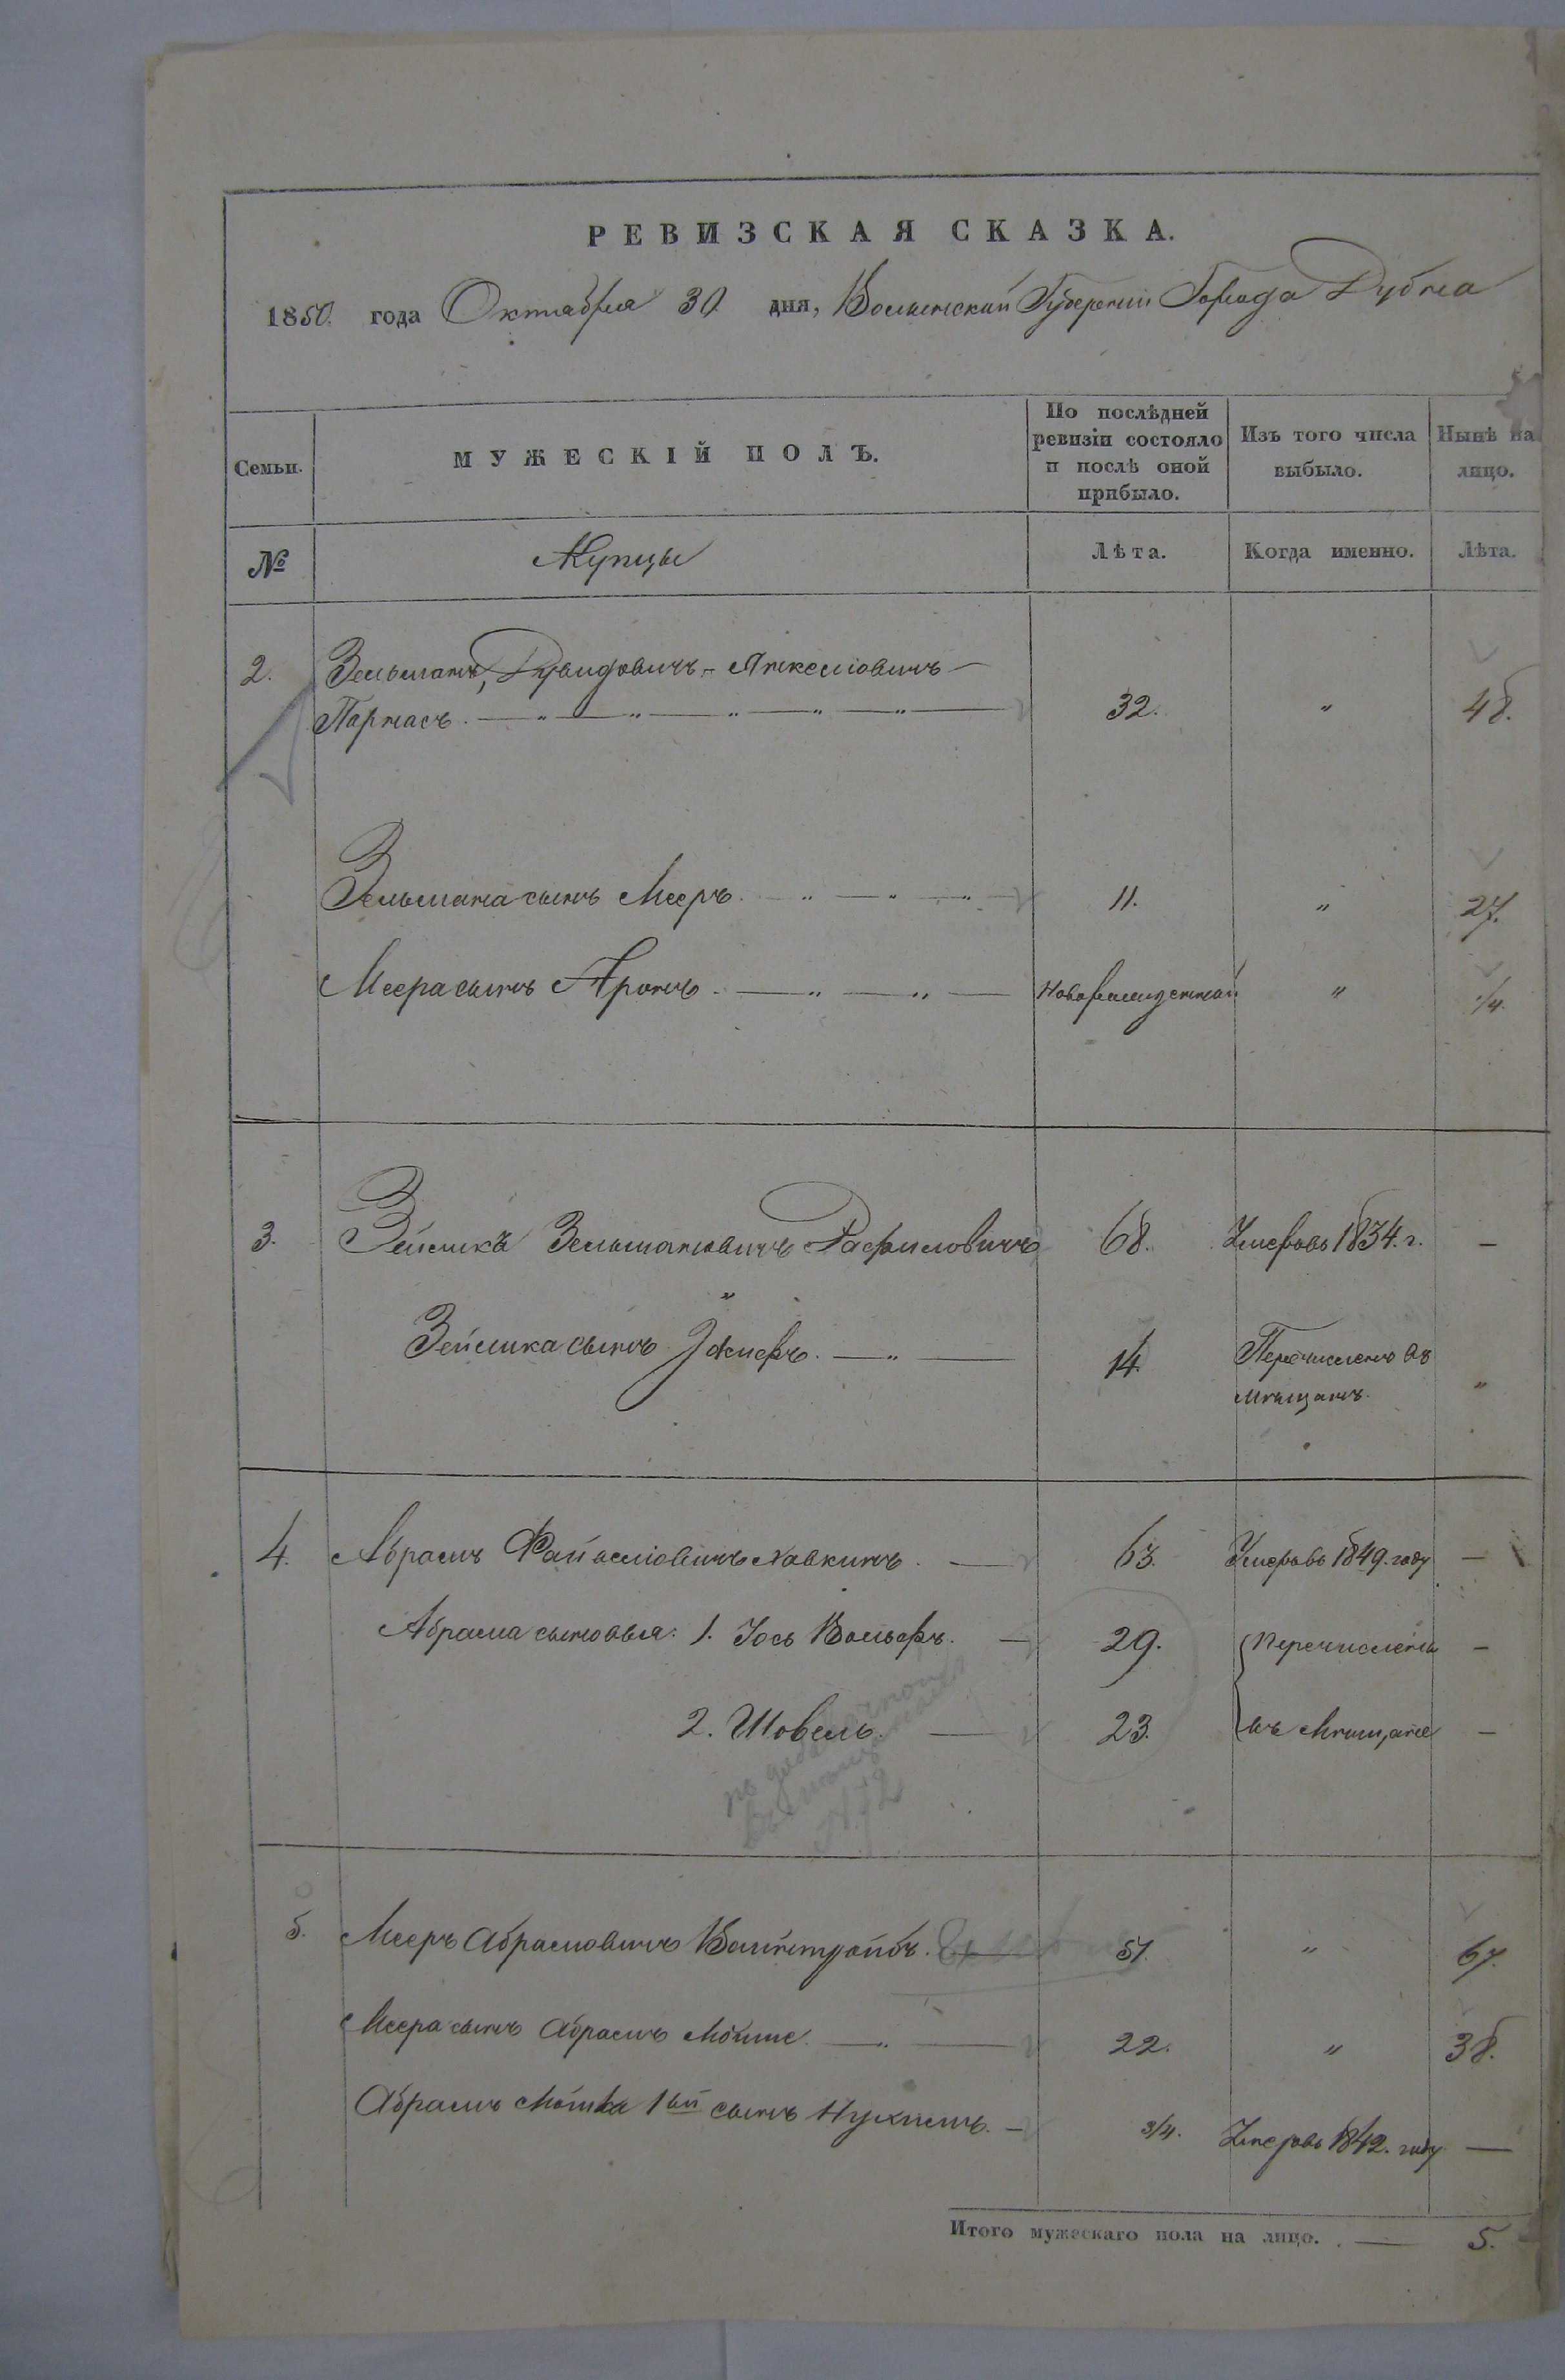 РЕВИЗСКАЯ СКАЗКА.
1850. года Октября 30 дня, Волынской Губернии Города Дубна
Семьи.
МУЖЕСКІЙ ПОЛЪ.
По послѣдней
ревизіи состояло
и послѣ оной
прибыло.
Изъ того числа
выбыло.
Нынѣ на
лицо.
№
Купцы
Лѣта.
Когда именно.
Лѣта.
2. Зельманъ Дувидовичъ-Анкеліовичъ
Парнасъ. 32. " 48.
Зельмана сынъ Мееръ. 11. " 27.
Меера сынъ Аронъ. Новорожденной " 1/4.
3. Зейликъ Зельмановичъ Рафиловичъ 68. Умеръ въ 1834. г. —
Зейлика сынъ 14. Перечисленъ въ
мѣщанъ. "
4. Абрамъ Файвеліовичъ Хавкинъ. 63. Умеръ въ 1849. году —
Абрама сыновья: 1. Іось Вольфъ. 29. Перечислены —
2. Шовель. 23. въ мѣщане —
по
№ 72
5. Мееръ Абрамовичъ Вайнтройбъ. 51. " 67.
Меера сынъ Абрамъ Мошке. 22. " 38.
Абрамъ Мошка 1ый сынъ Нухимъ. 3/4. Умеръ въ 1842. году —
Итого мужескаго пола на лицо. 5.